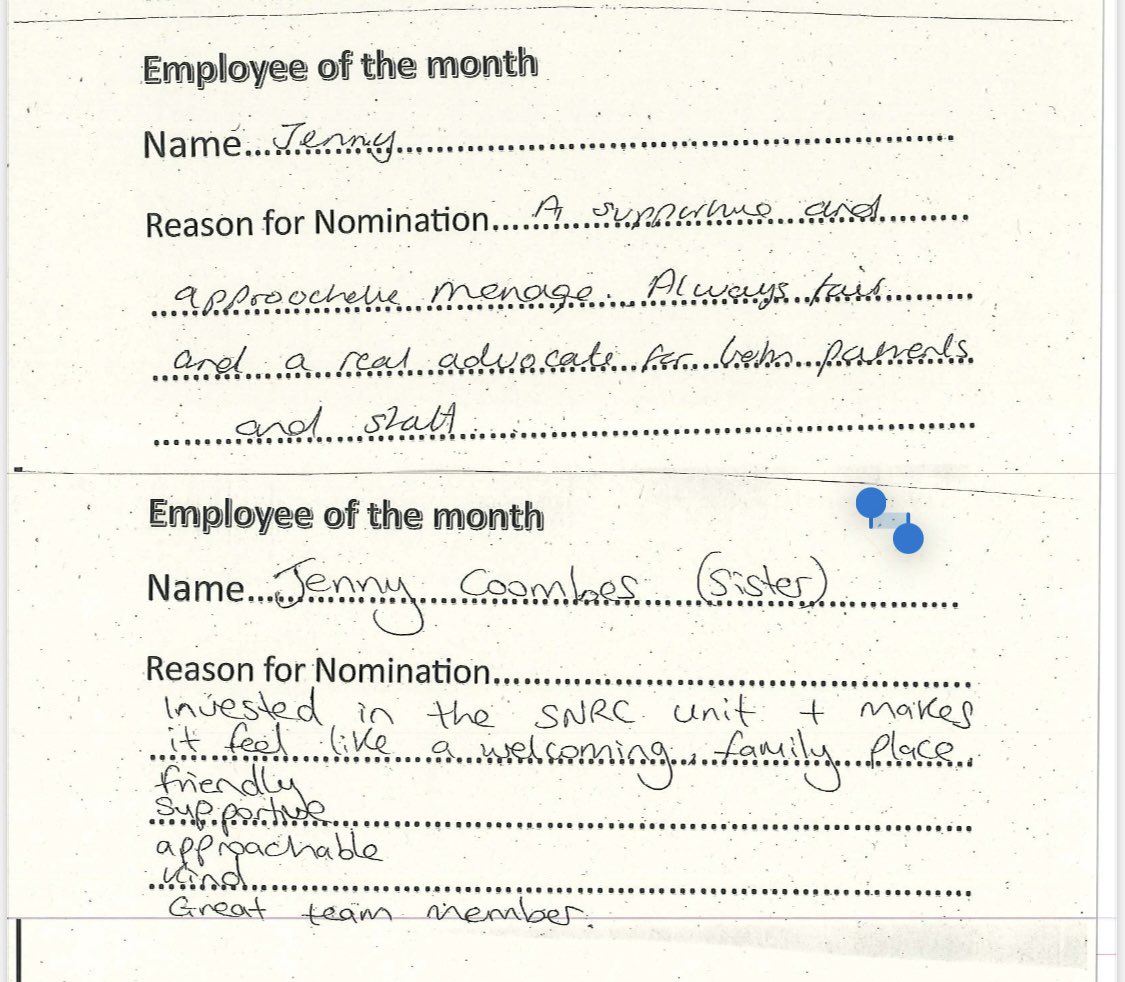 Employee of the month
Name...Jenny
Reason for Nomination... A supportive and
approachable manager. Always fair
and a real advocate for both patients
and staff
Employee of the month
Name...Jenny Coombes (Sister)
Reason for Nomination...
Invested in the SNRC unit + makes
it feel like a welcoming, family place.
friendly
Supportive
approachable
Kind
Great team member.